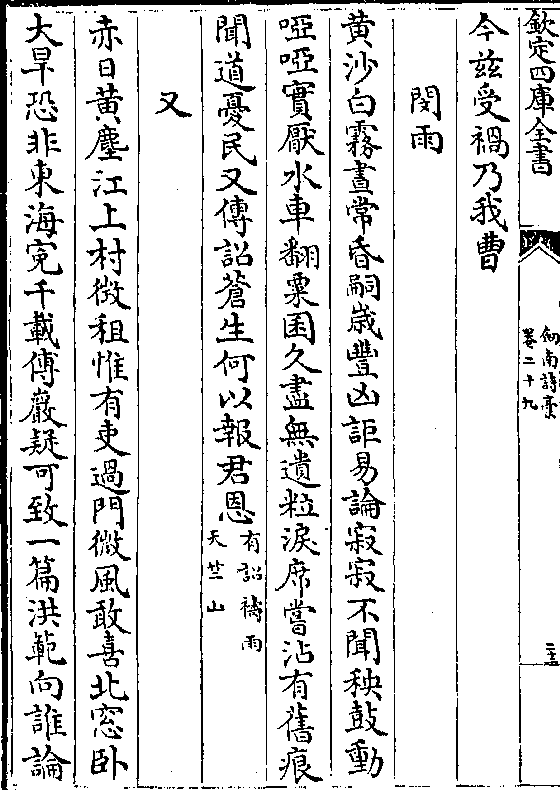 欽定四庫全書
劍南詩槀
卷二十九
二十二
今兹受禍乃我曹
閔雨
黄沙白霧晝常昏嗣歲豐凶詎易論寂寂不聞秧鼓動
啞啞實厭水車翻粟囷久盡無遺粒淚席嘗沾有舊痕
聞道憂民又傳詔蒼生何以報君恩有詔禱雨
天竺山
又
赤日黄塵江上村徴租惟有吏過門微風敢喜北窓卧
大旱恐非東海寃千載傅巖疑可致一篇洪範向誰論